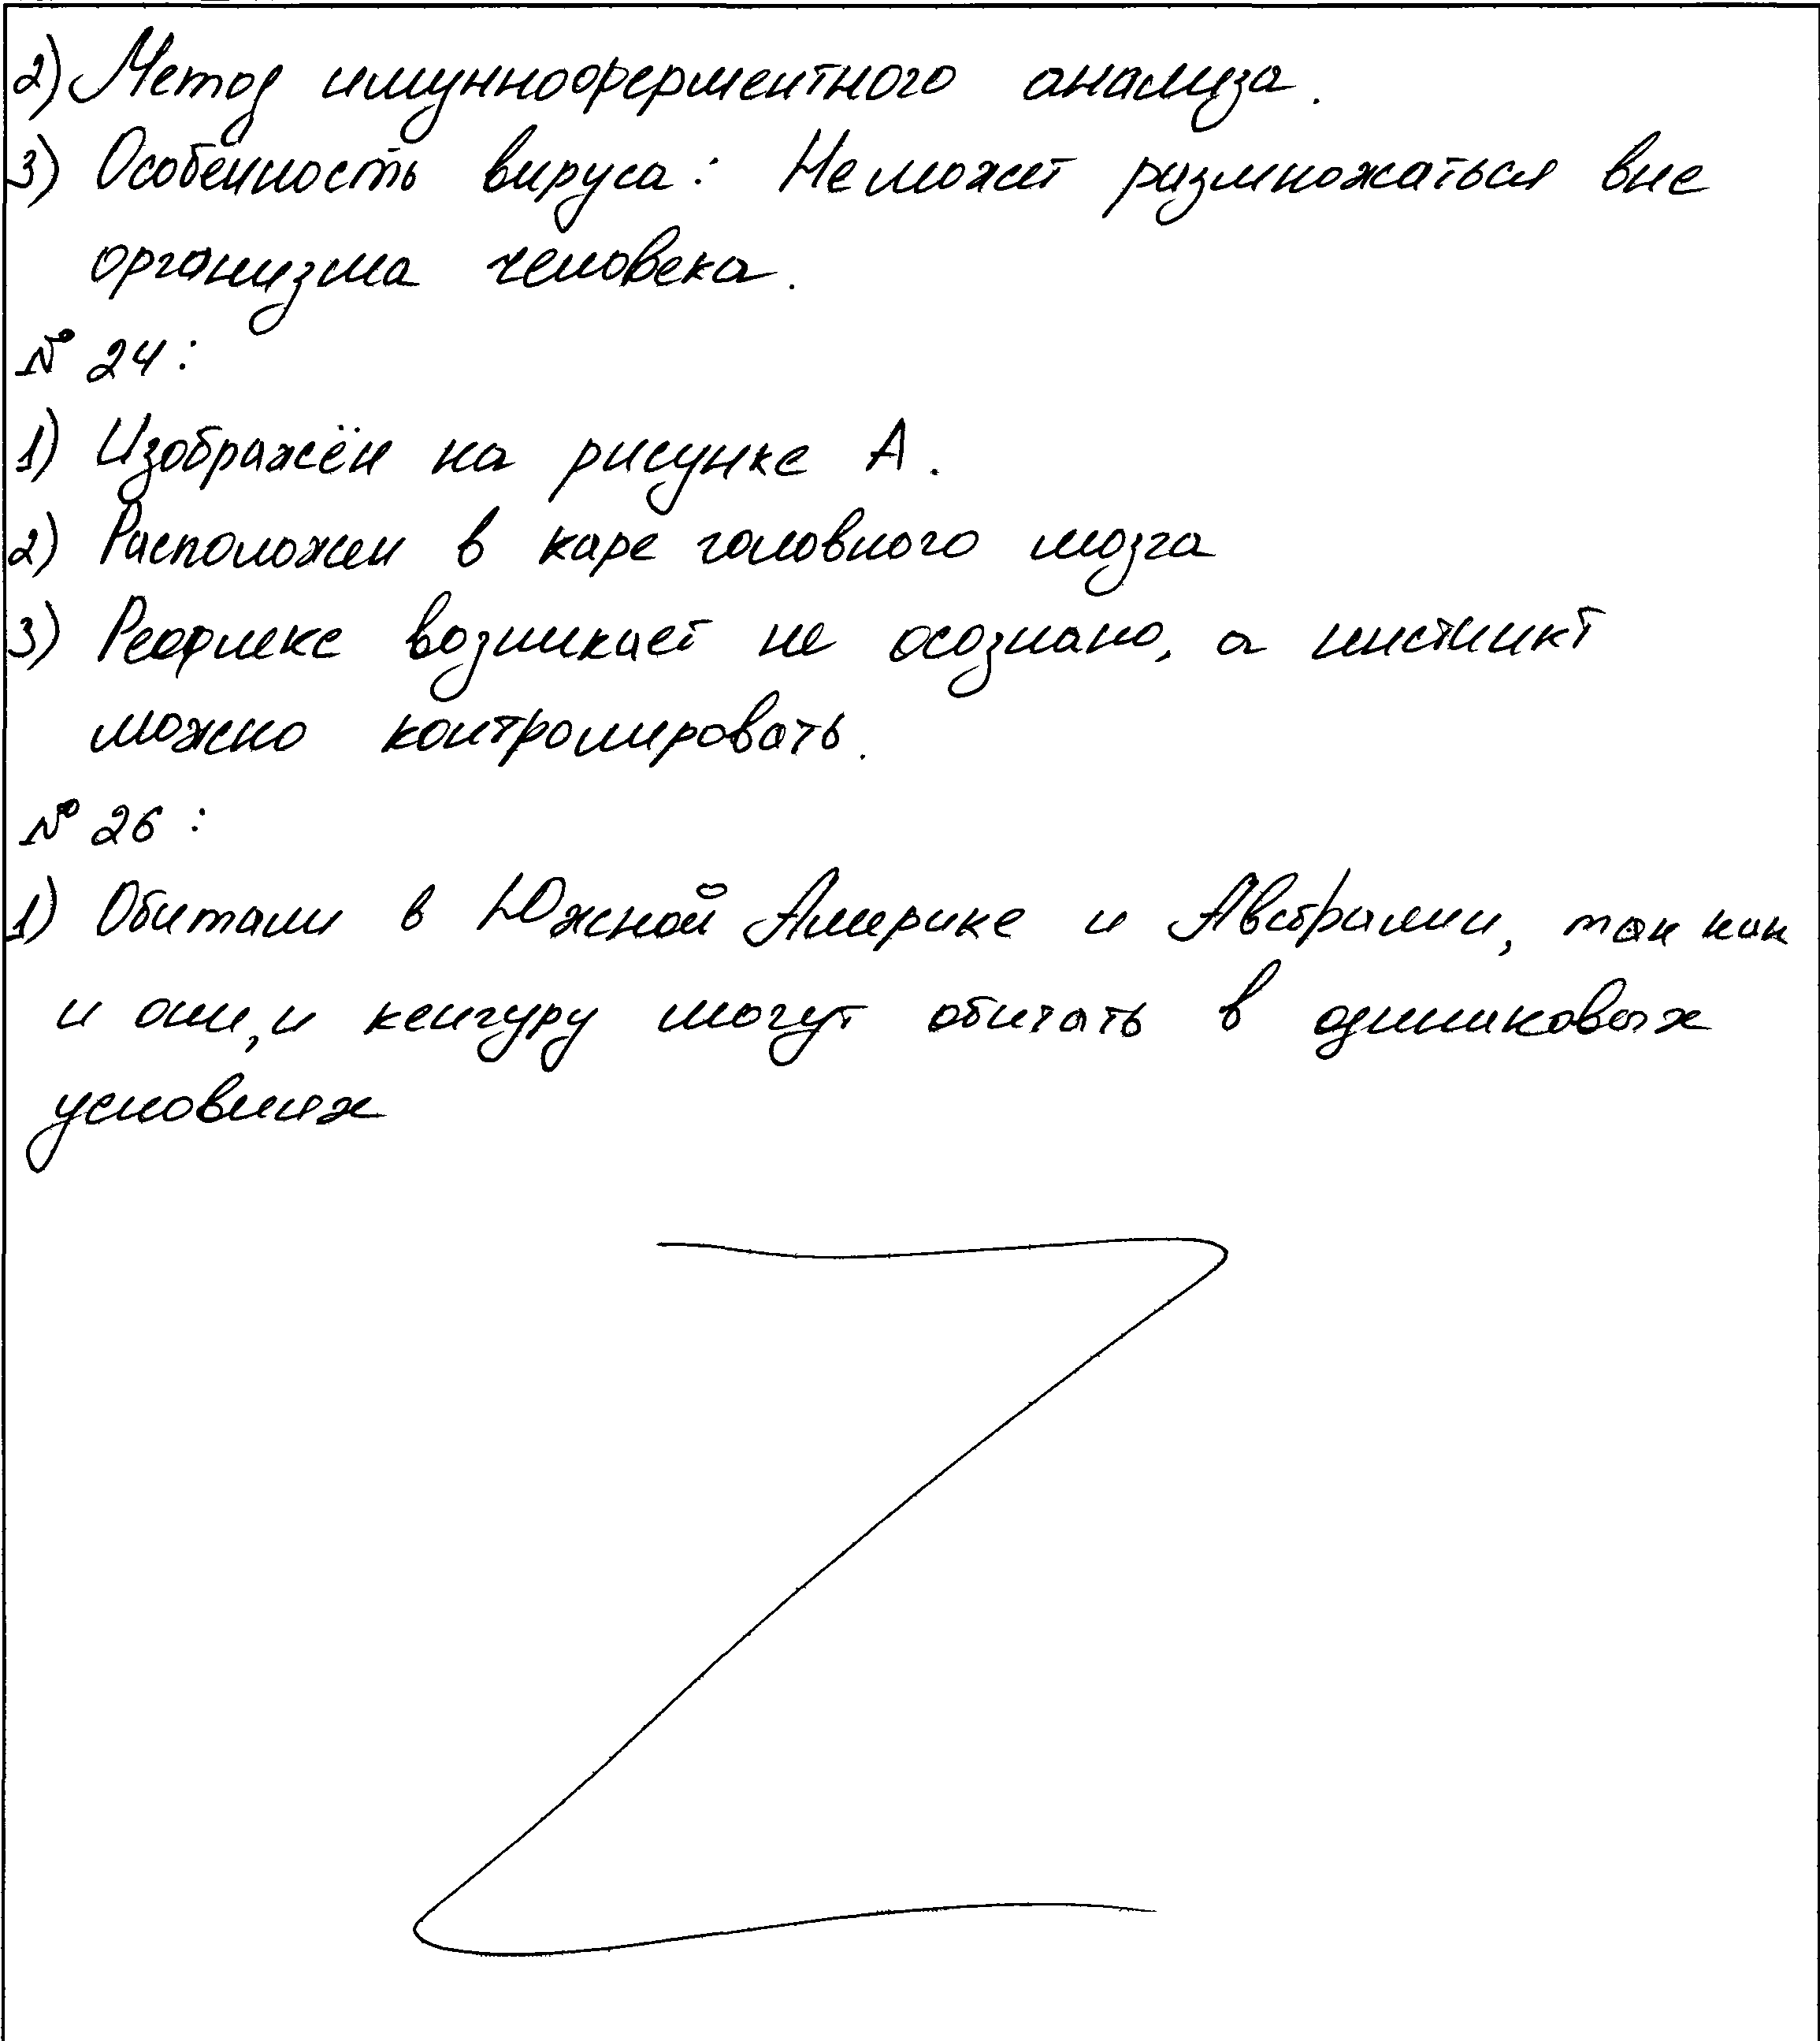 2) Метод имунноферментного анализа.
3) Особенность вируса: Не может размножаться вне
организма человека.
№ 24:
1) Изображён на рисунке А.
2) Расположен в каре головного мозга
3) Рефлекс возникает не осознано, а инстинкт
можно контролировать.
№ 26:
1) Обитали в Южной Америке и Австралии, так как
и они, и кенгуру могут обитать в одинаковых
условиях